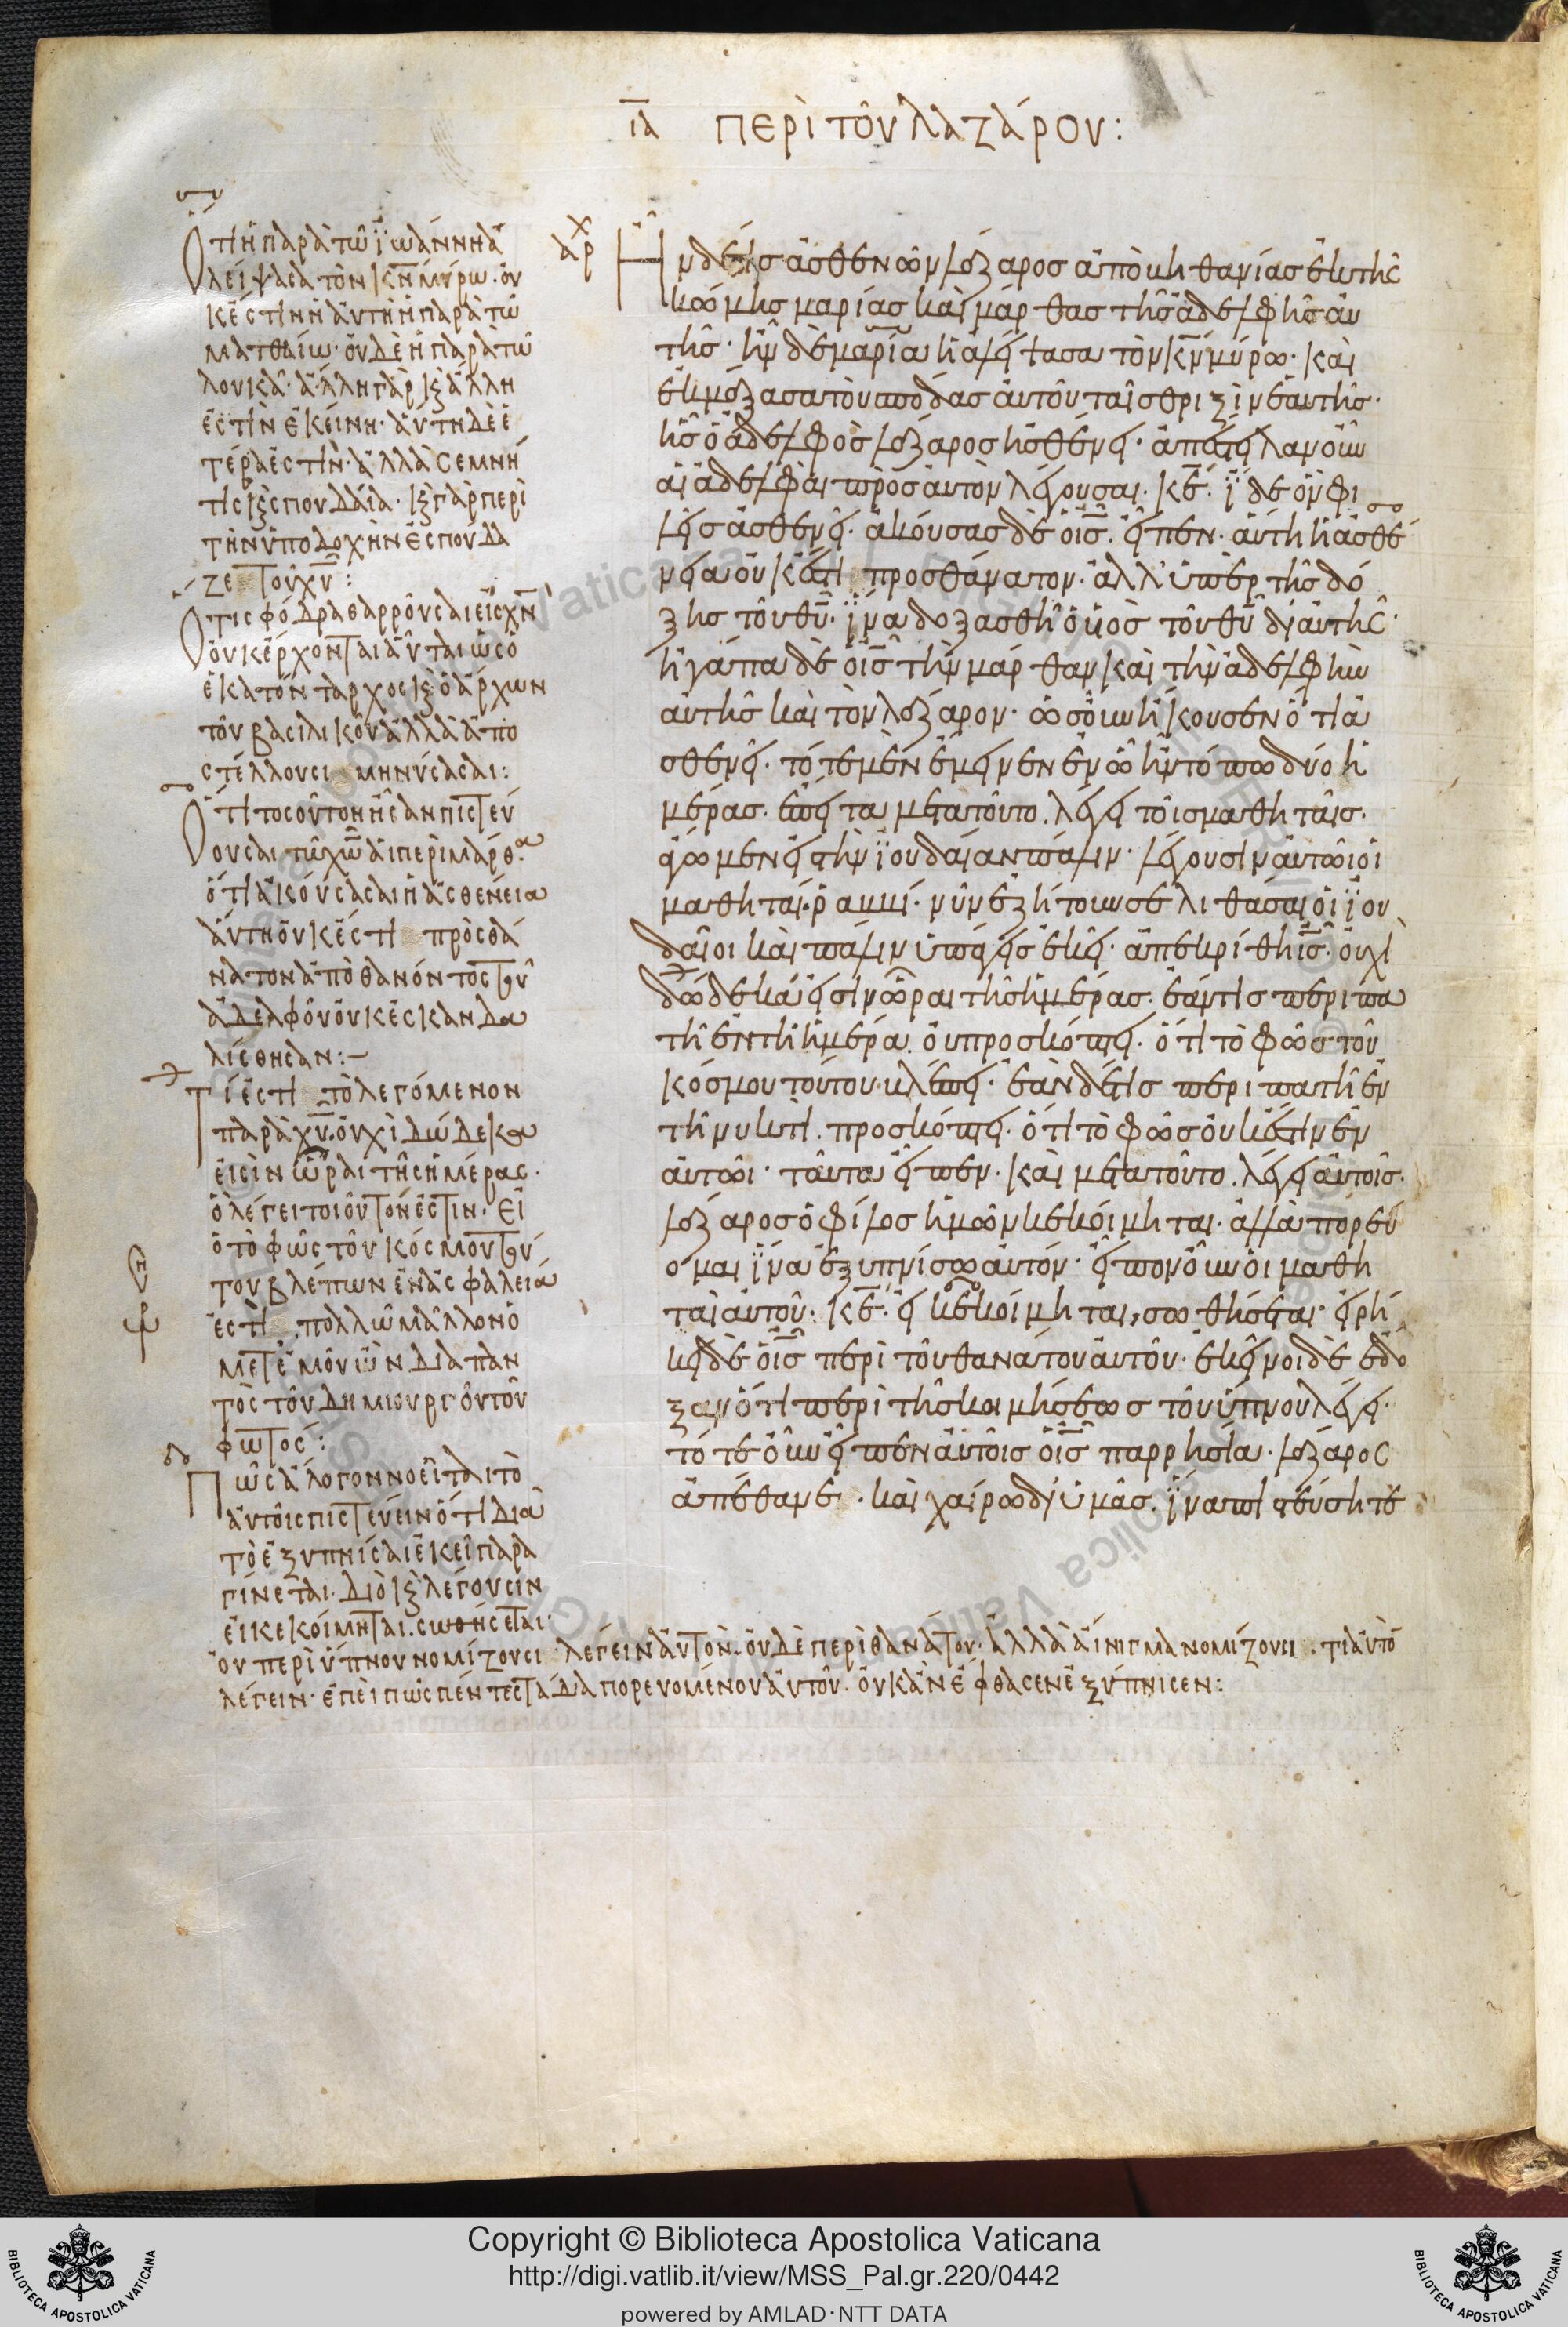 ια περὶ τοῦ λαζάρου:
Ὅτι ἡ παρὰ τῶ ϊωάννη ἀ
λείψασα τὸν κ̅ν̅ μύρω. οὐ
κέστιν ἡ αὐτὴ ἡ παρὰ τῶ
ματθαίω· οὐδὲ ἡ παρὰ τῶ
λουκᾶ· ἄλλη γὰρ κ ἄλλη
ἐστὶν ἐκείνη· αὕτη δὲ ἑ
τέρα ἐστὶν· ἀλλὰ σεμνή
τις κ σπουδαία· κ γὰρ περὶ
τὴν ὑποδοχὴν ἐσπούδα
ζε τοῦ χ̅υ̅:
Ὅτι σφόδρα θαρροῦσαι εἰς χ̅ν̅
οὐκ ἔρχονται αὗται ὡς ὁ
ἑκατόνταρχος κ ὁ ἄρχων
τοῦ βασιλικοῦ ἀλλὰ ἀπο
στέλλουσι μηνύσασαι:
Ὅτι τοσοῦτον ἦσαν πιστεύ
ουσαι τῶ χ̅ω̅ αἱ περὶ μάρθα
ὅτι ἀκούσασαι ἡ ἀσθένεια
αὕτη οὐκέστι πρὸς θά
νατον ἀποθανόντος τοῦ
ἀδελφοῦ οὐκ ἐσκανδα
λίσθησαν:
Τί ἐστι τὸ λεγόμενον
παρὰ χ̅υ̅. οὐχὶ δώδεκα
εἰσὶν ὧραι τῆς ἡμέρας·
ὃ λέγει τοιοῦτον ἐστιν· εἰ
ὁ τὸ φῶς τοῦ κόσμου τού
του βλέπων ἐν ἀσφαλεία
ἐστι πολλῶ μᾶλλον ὁ
μετ ἐμοῦ ὢν διαπαν
τὸς τοῦ δημιουργοῦ τοῦ
φωτός:
Πῶς ἄλογον νοεῖται τὸ
αὐτοῖς πιστεύειν ὅτι διὰ
τὸ ἐξυπνίσαι ἐκεῖ παρα
γίνεται· διὸ κ λέγουσιν
εἰ κεκοίμηται. σωθήσεται·
οὐ περὶ ὕπνου νομίζουσι λέγειν αὐτὸν. οὐδὲ περὶ θανάτου· ἀλλὰ αἴνιγμα νομίζουσι τι αὐτὸ
λέγειν· ἐπεὶ πῶς πέντε στάδια πορευομένου αὐτοῦ. οὐκ ἂν ἔφθασεν ἐξύπνισεν:
αρχ
Ἦν δέ τις ἀσθενῶν λάζαρος ἀπὸ βηθανίας ἐκ τῆς
κώμης μαρίας καὶ μάρθας τῆς ἀδελφῆς αὐ
τῆς· ἦν δὲ μαρία ἡ ἀλείψασα τὸν κ̅ν̅ μύρω· καὶ
ἐκμάξασα τοὺς πόδας αὐτοῦ ταῖς θριξὶν ἑαυτῆς·
ἧς ὁ ἀδελφὸς λάζαρος ἠσθένει· ἀπέστειλαν οὖν
αἱ ἀδελφαὶ πρὸς αὐτὸν λέγουσαι. κ̅ε̅. ἴδε ὃν φι
λεῖς ἀσθενεῖ· ἀκούσας δὲ ὁ ι̅ς̅. εἶπεν· αὕτη ἡ ἀσθέ
νεια οὐκ ἔστι προς θάνατον· ἀλλ' ὑπὲρ τῆς δό
ξης τοῦ θ̅υ̅· ἵνα δοξασθῆ ὁ υἱὸς τοῦ θ̅υ̅ δι αὐτῆς·
ἠγάπα δὲ ὁ ι̅ς̅ τὴν μάρθαν καὶ τὴν ἀδελφὴν
αὐτῆς καὶ τὸν λάζαρον· ὡς οὖν ἤκουσεν ὅτι ἀ
σθενεῖ· τότε μὲν ἔμεινεν ἐν ὧ ἦν τόπω δύο ἡ
μέρας· ἔπειτα μετα τοῦτο. λέγει τοῖς μαθηταῖς·
ἄγωμεν εἰς τὴν ϊουδαίαν πάλιν· λέγουσιν αὐτῶ οἱ
μαθηταί· ῥαββί. νῦν ἐζήτουν σε λιθάσαι οἱ ϊου
δαῖοι καὶ πάλιν ὑπάγεις ἐκεῖ· ἀπεκρίθη ι̅ς̅· οὐχὶ
δώδεκά εἰσιν ὧραι τῆς ἡμέρας· ἐάν τις περιπα
τῆ ἐν τῆ ἡμέρα. οὐ προσκόπτει· ὅτι τὸ φῶς τοῦ
κόσμου τούτου βλέπει· ἐὰν δέ τις περιπατῆ ἐν
τῆ νυκτὶ. προσκόπτει· ὅτι τὸ φῶς οὐκ ἔστιν ἐν
αὐτῶι· ταῦτα εἶπεν· καὶ μετα τοῦτο. λέγει αὐτοῖς·
λάζαρος ὁ φίλος ἡμῶν κεκοίμηται· ἀλλὰ πορεύ
ομαι ἵνα ἐξυπνίσω αὐτόν· εἶπον οὖν οἱ μαθη
ταὶ αὐτοῦ· κ̅ε̅· εἰ κεκοίμηται, σωθήσεται· εἰρή
κει δὲ ὁ ι̅ς̅ περὶ τοῦ θανάτου αὐτοῦ· ἐκεῖνοι δὲ ἔδο
ξαν ὅτι περὶ τῆς κοιμήσεως τοῦ ὕπνου λέγει·
τότε οὖν εἶπεν αὐτοῖς ὁ ι̅ς̅ παρρησία· λάζαρος
ἀπέθανε· καὶ χαίρω δι ὑμᾶς. ἵνα πιστεύσητε
Copyright © Biblioteca Apostolica Vaticana
http://digi.vatlib.it/view/MSS_Pal.gr.220/0442
powered by AMLAD·NTT DATA